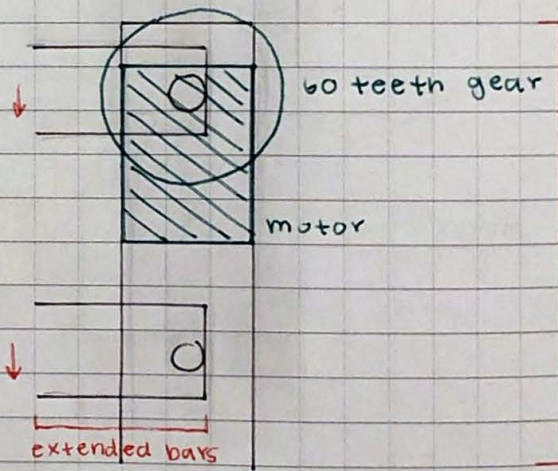 60 teeth gear
motor
extended bars